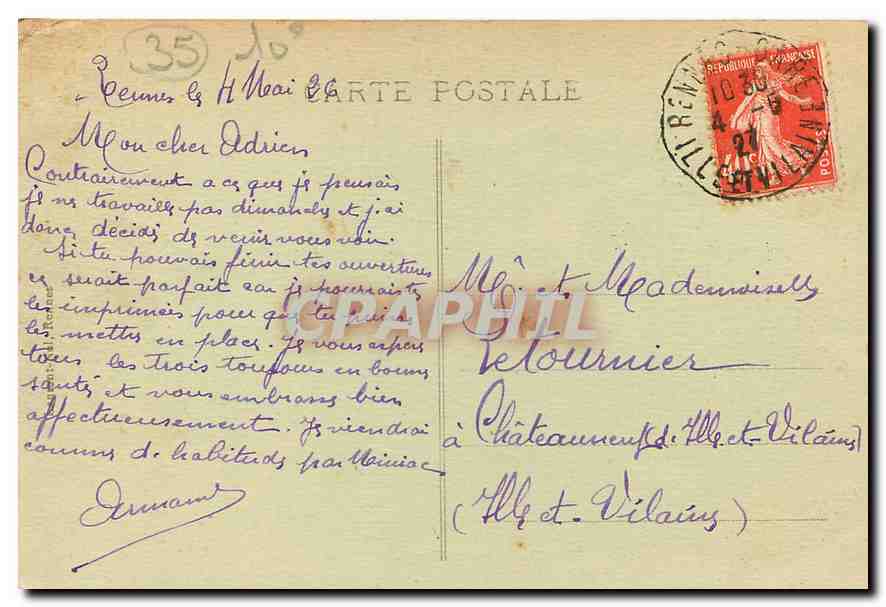 35
10°
Rennes le 4 Mai 26
CARTE POSTALE
RÉPUBLIQUE FRANÇAISE
POSTES
RENNES
10 30
4 - 5
27
ILLE ET VILAINE
Mon cher Adrien
Contrairement a ce que je pensais
je ne travaille pas dimanche et j'ai
donc décidé de venir vous voir.
Si tu pouvais finir tes ouvertures
ce serait parfait car je pourrais te
les imprimer pour que tu puisses
les mettre en place. Je vous espère
tous les trois toujours en bonne
santé et vous embrasse bien
affectueusement. Je viendrai
comme d'habitude par Miniac
Armand
Mr et Mademoiselle
Letournier
à Châteauneuf (d'Ille-et-Vilaine)
(Ille-et-Vilaine)
CPAPHIL
Rennes